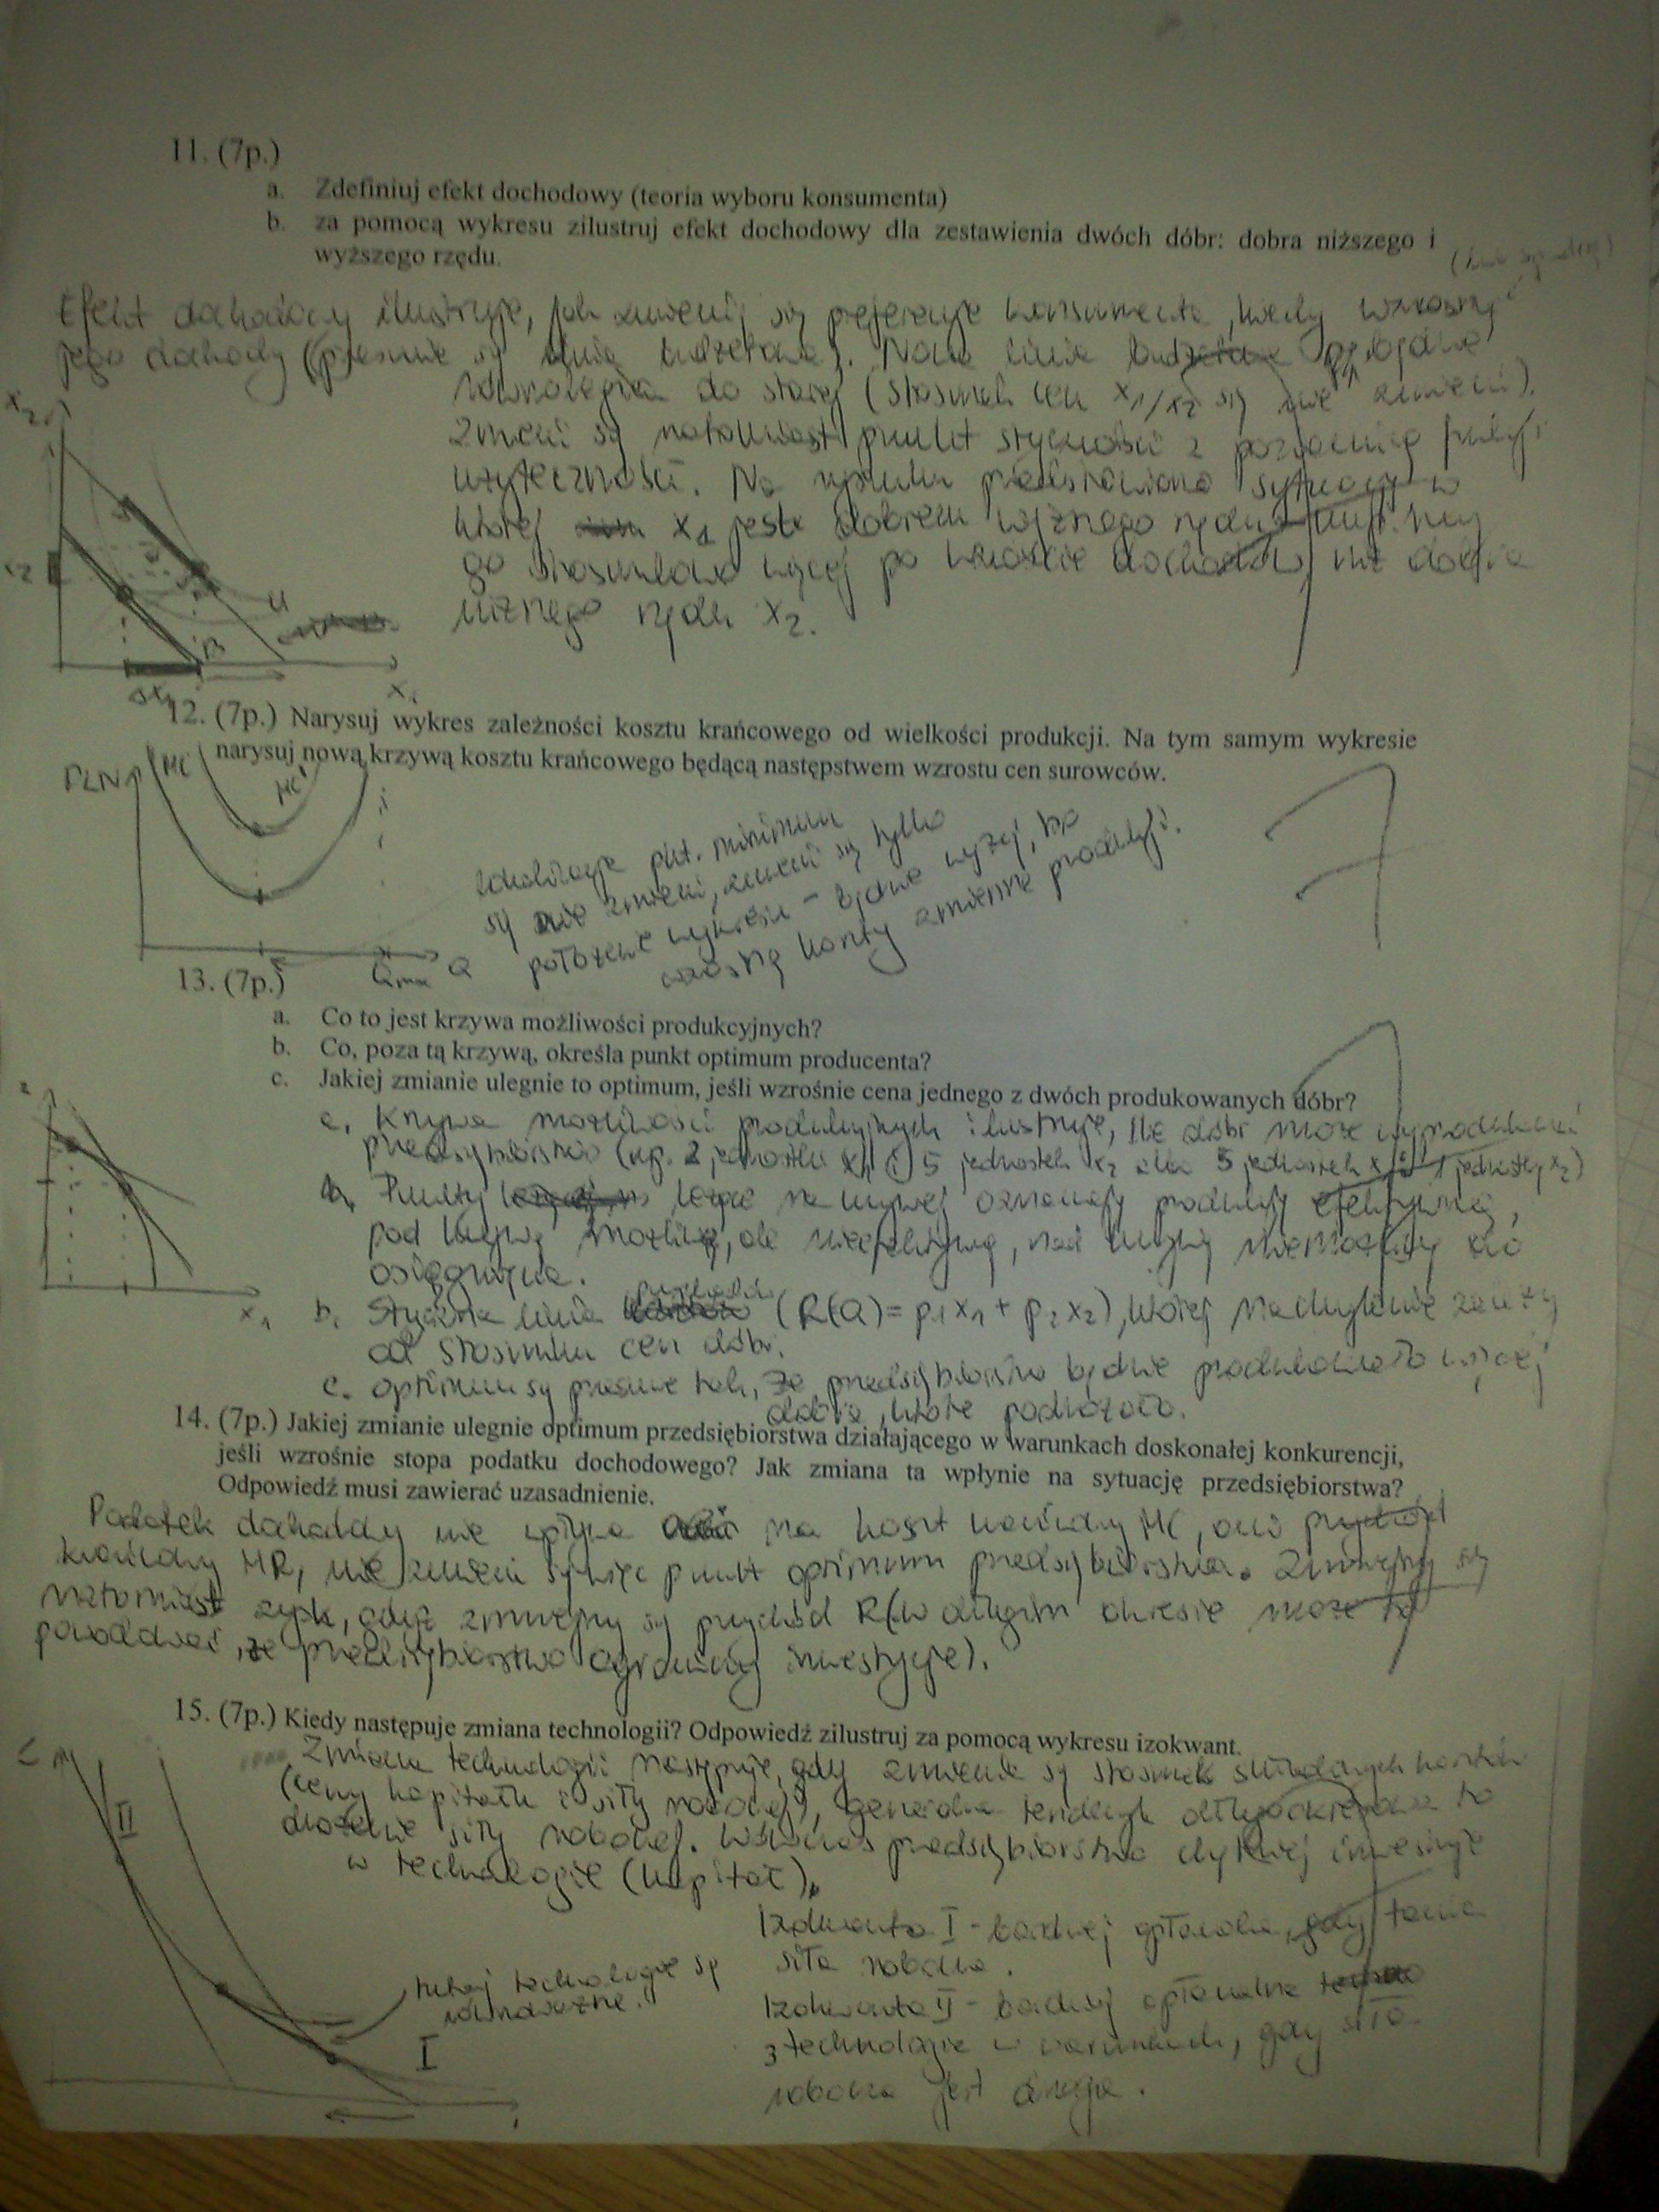 11. (7p.)
a. Zdefiniuj efekt dochodowy (teoria wyboru konsumenta)
b. za pomocą wykresu zilustruj efekt dochodowy dla zestawienia dwóch dóbr: dobra niższego i
wyższego rzędu.
Efekt dochodowy ilustruje, jak zmienią się preferencje konsumenta, kiedy wzrosną
jego dochody (przesunie się linia budżetowa). Nowa linia budżetowa będzie
równoległa do starej (stosunek cen x1/x2 się nie zmieni).
Zmieni się natomiast punkt styczności z
użyteczności. Na rysunku przedstawiono sytuację w
której x1 jest dobrem wyższego rzędu
go stosunkowo więcej po wzroście dochodów niż dobra
niższego rzędu x2.
x2
x2
U
B
Δx1
x1
12. (7p.) Narysuj wykres zależności kosztu krańcowego od wielkości produkcji. Na tym samym wykresie
narysuj nową krzywą kosztu krańcowego będącą następstwem wzrostu cen surowców.
PLN
MC
MC'
Lokalizacja pkt. minimum
się nie zmieni, zmieni się tylko
położenie wykresu - będzie wyżej, bo
wzrosną koszty zmienne produkcji.
Qmax
Q
7
13. (7p.)
a. Co to jest krzywa możliwości produkcyjnych?
b. Co, poza tą krzywą, określa punkt optimum producenta?
c. Jakiej zmianie ulegnie to optimum, jeśli wzrośnie cena jednego z dwóch produkowanych dóbr?
a. Krzywa możliwości produkcyjnych ilustruje, ile dóbr może wyprodukować
przedsiębiorstwo (np. 2 jednostki x1 i 5 jednostek x2 albo 5 jednostek x1 i 1 jednostkę x2)
Punkty leżące na krzywej oznaczają produkcję efektywną,
pod krzywą możliwą, ale nieefektywną, nad krzywą niemożliwą do
osiągnięcia.
b. Styczna linia przychodu (R(Q) = p1x1 + p2x2), której nachylenie zależy
od stosunku cen dóbr.
c. optimum się przesunie tak, że przedsiębiorstwo będzie produkowało więcej
dobra, które podrożało.
x1
14. (7p.) Jakiej zmianie ulegnie optimum przedsiębiorstwa działającego w warunkach doskonałej konkurencji,
jeśli wzrośnie stopa podatku dochodowego? Jak zmiana ta wpłynie na sytuację przedsiębiorstwa?
Odpowiedź musi zawierać uzasadnienie.
Podatek dochodowy nie wpływa na koszt krańcowy MC, ani przychód
krańcowy MR, nie zmieni się więc punkt optimum przedsiębiorstwa. Zmniejszy się
natomiast zysk, gdyż zmniejszy się przychód R (w długim okresie może to
powodować, że przedsiębiorstwo ograniczy inwestycje).
15. (7p.) Kiedy następuje zmiana technologii? Odpowiedź zilustruj za pomocą wykresu izokwant.
Zmiana technologii następuje, gdy zmienia się stosunek składowych kosztów
(ceny kapitału i siły roboczej), generalna tendencja długookresowa to
drożenie siły roboczej. Wówczas przedsiębiorstwo chętniej inwestuje
w technologie (kapitał).
II
I
tutaj technologie są
równoważne.
Izokwanta I - bardziej opłacalna, gdy tania
siła robocza.
Izokwanta II - bardziej opłacalne
technologie w warunkach, gdy siła
robocza jest droga.